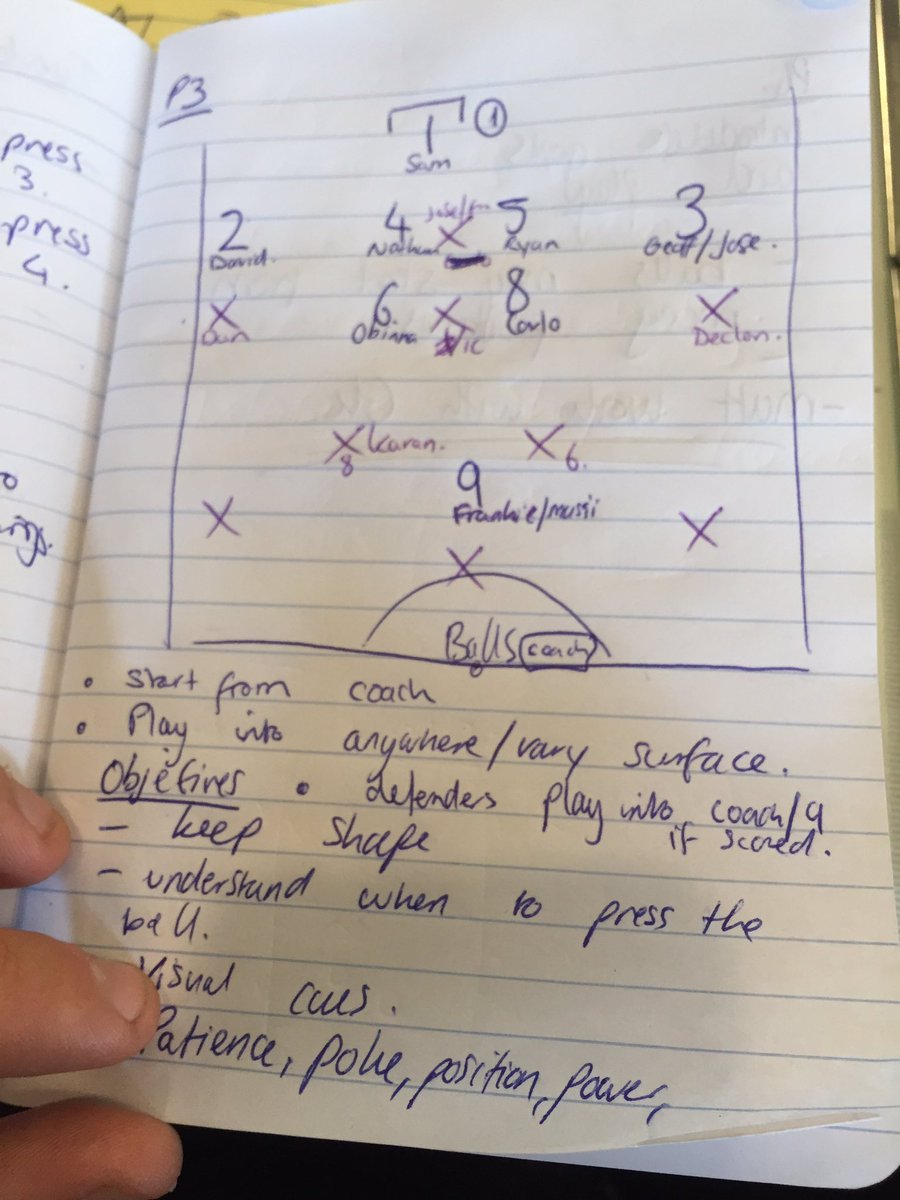 press
3.
press
4.
P3
1
Sam
2 4 5 3
David. Nathan Ryan Geoff/Jose.
X
6 8
X X X
Dan Obinna Vic Carlo Declan.
X Karan. X
8 6.
9
Frankie/mussi
X X
X
Balls coach
• Start from coach
• Play into anywhere/vary surface.
Objetives • defenders play into coach/9
if scored.
- keep shape
- understand when to press the
ball.
Visual cues.
Patience, poke, position, power,